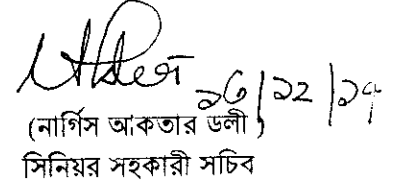 ২৬/১২/১৭
(নার্গিস আকতার ডলী)
সিনিয়র সহকারী সচিব